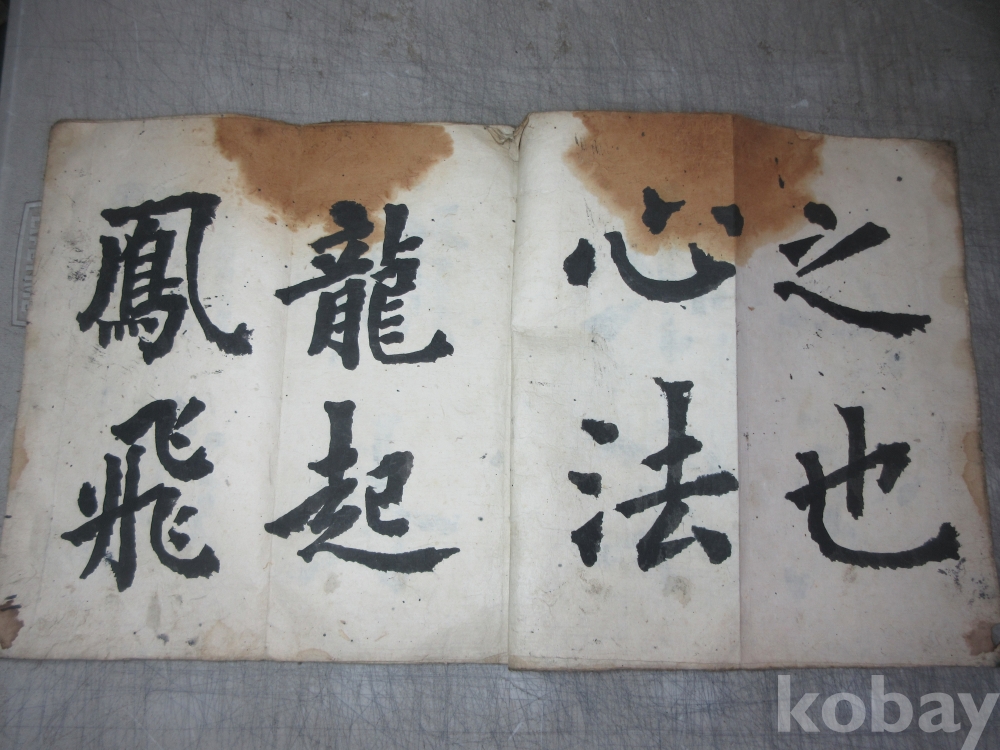 之也
心法
龍起
鳳飛
kobay